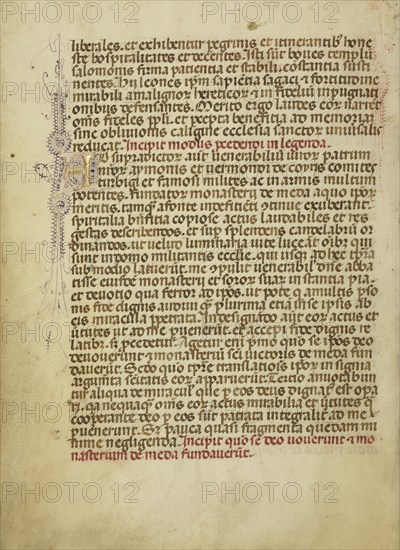 liberales. et exhibentur pegrinis et itinerantib' hone
ste hospitalitates et decentes. Isti sut boues templi
salomonis firma patientia et stabili. costantia susti
nentes. Hii leones ipm sapietia sagaci et fortitudine
mirabili a malignor hereticor et infideliu ipugnati
onibus defensantes. Merito ergo laudes eor narret
omis fideles ppli. et pcepta beneficia ad memoria
sine obliuionis caligine ecclesia sanctor uniuersalis
reducat. Incipit modus pcedendi in legenda.
Ad supradictor aut venerabiliu uiror patrum
nror aymonis et vermondi de corijs comites
turbigi et famosi milites ac in armis multum
potentes. fundator monasterij de meda a quo ipor
meritis. tamq a fonte indeficieti cotinue exuberant
spiritalia bnficia copiose actus laudabiles et res
gestas describentos. et sup splendens candelabru or
dinandos. ut velut luminaria vite luceat oibz qui
sunt in domo militantis ecclie. qui usq ad hec tpra
sub modio latuerut. me opulit venerabil dne abba
tisse eiusde monasterij et soror suar instantia pia
et deuotio qua feror ad ipos. ut pote q a multis pso
nis fide dignis audiui q plurima etia sn se ipsis ab
eis miracula ppetrata. In designado aut eor actus et
uirtutes ut ad me puenerut. et accepi fide dignis re
latibz. sic pcedetur. Agetur eni primo quo se ipos deo
deuouerunt et monasteriu sci uictoris de meda fun
dauerut. Scdo quo tpre translatiois ipor insignia
argumta scitatis eor apparuerut. Tertio annotabun
tur aliqua de miraculis que p eos deus dignat est opa
ri. qa nequaq omis eor actus mirabilia et uirtutes q
cooperante deo p eos sut patrata integralit ad me
puenerunt. Sz pauca quasi fragmenta quedam mi
nime negligenda. Incipit quo se deo vouerunt et mo
nasterium de meda fundauerut.
PHOTO 12